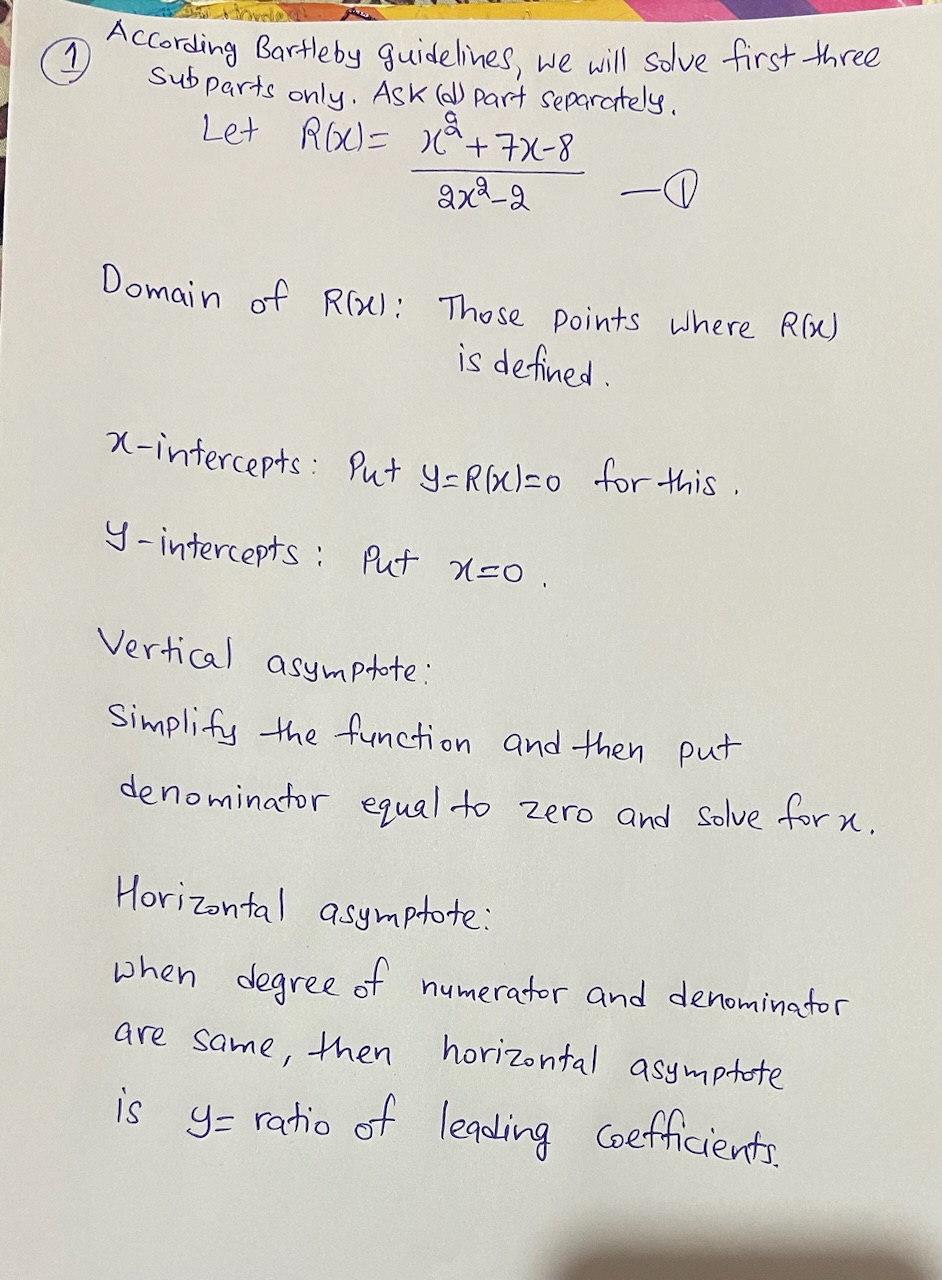 ① According Bartleby guidelines, we will solve first three
Subparts only. Ask (d) part separately.
Let R(x)= x²+7x-8
2x²-2 —①
Domain of R(x): Those points where R(x)
is defined.
x-intercepts: Put y=R(x)=0 for this.
y-intercepts: Put x=0.
Vertical asymptote:
Simplify the function and then put
denominator equal to zero and solve for x.
Horizontal asymptote:
when degree of numerator and denominator
are same, then horizontal asymptote
is y= ratio of leading coefficients.